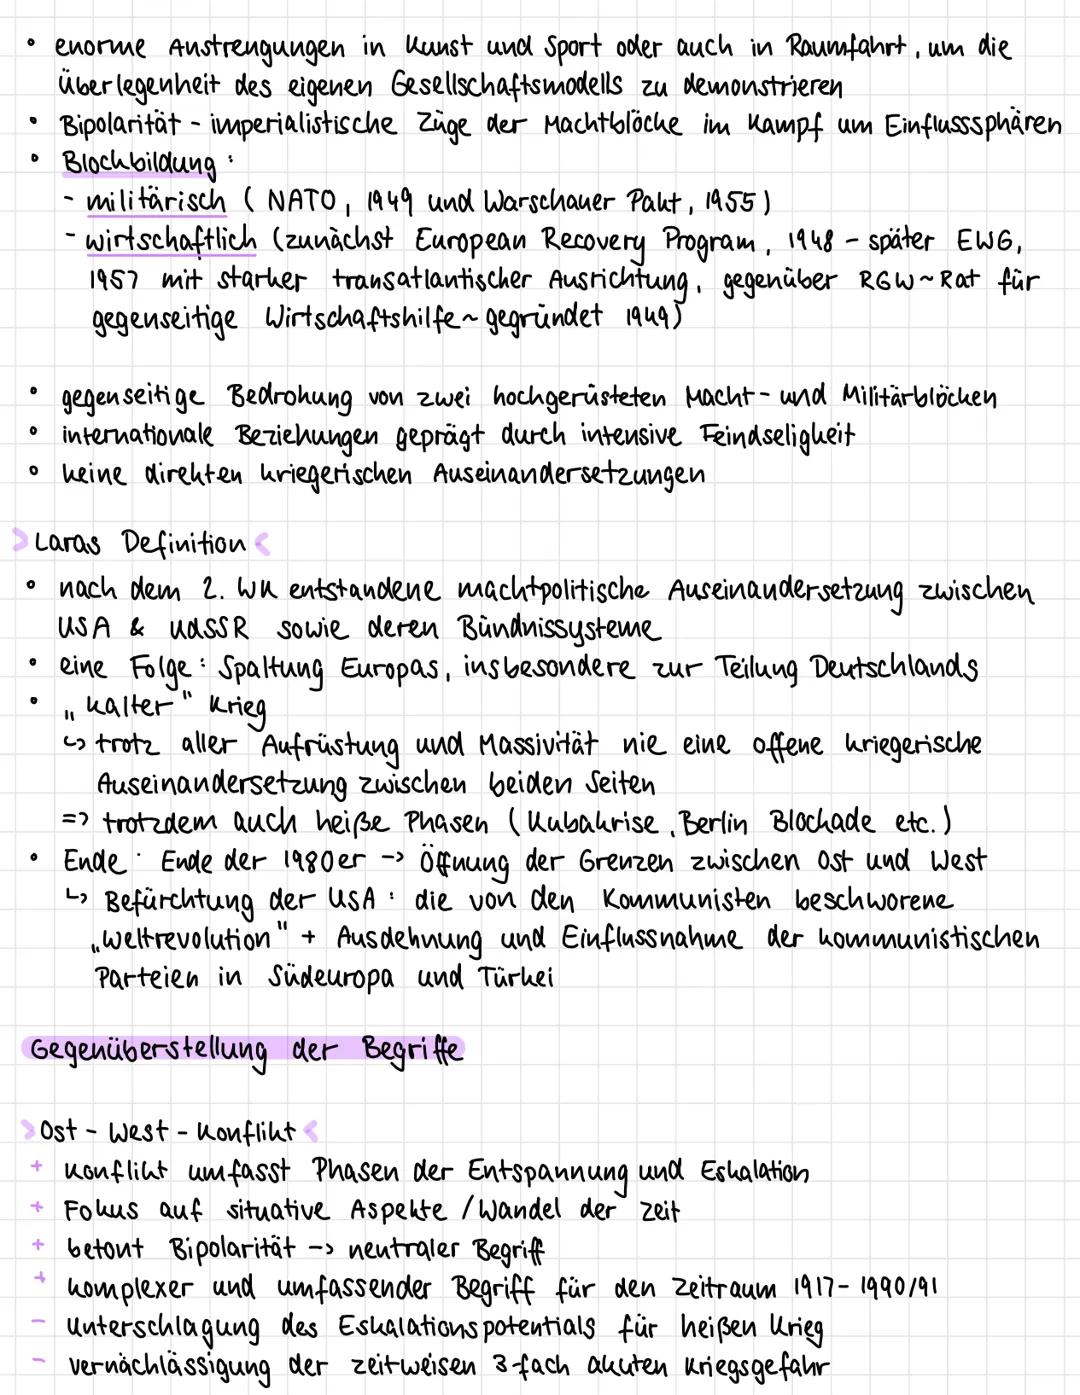 • enorme Anstrengungen in Kunst und Sport oder auch in Raumfahrt, um die
Überlegenheit des eigenen Gesellschaftsmodells zu demonstrieren
• Bipolarität - imperialistische Züge der Machtblöcke im Kampf um Einflusssphären
• Blockbildung:
- militärisch (NATO, 1949 und Warschauer Pakt, 1955)
- wirtschaftlich (zunächst European Recovery Program, 1948 - später EWG,
1957 mit starker transatlantischer Ausrichtung, gegenüber RGW ~ Rat für
gegenseitige Wirtschaftshilfe ~ gegründet 1949)
• gegenseitige Bedrohung von zwei hochgerüsteten Macht- und Militärblöcken
• internationale Beziehungen geprägt durch intensive Feindseligkeit
• keine direkten kriegerischen Auseinandersetzungen
> Laras Definition <
• nach dem 2. WK entstandene machtpolitische Auseinandersetzung zwischen
USA & UdSSR sowie deren Bündnissysteme
• eine Folge: Spaltung Europas, insbesondere zur Teilung Deutschlands
• „kalter" Krieg
↳ trotz aller Aufrüstung und Massivität nie eine offene kriegerische
Auseinandersetzung zwischen beiden Seiten
=> trotzdem auch heiße Phasen (Kubakrise, Berlin Blockade etc.)
• Ende: Ende der 1980er -> Öffnung der Grenzen zwischen Ost und West
↳ Befürchtung der USA: die von den Kommunisten beschworene
„Weltrevolution" + Ausdehnung und Einflussnahme der kommunistischen
Parteien in Südeuropa und Türkei
Gegenüberstellung der Begriffe
> Ost - West - Konflikt <
+ Konflikt umfasst Phasen der Entspannung und Eskalation
+ Fokus auf situative Aspekte / Wandel der Zeit
+ betont Bipolarität -> neutraler Begriff
+ komplexer und umfassender Begriff für den Zeitraum 1917 - 1990/91
- Unterschlagung des Eskalationspotentials für heißen Krieg
- Vernachlässigung der zeitweisen 3-fach akuten Kriegsgefahr